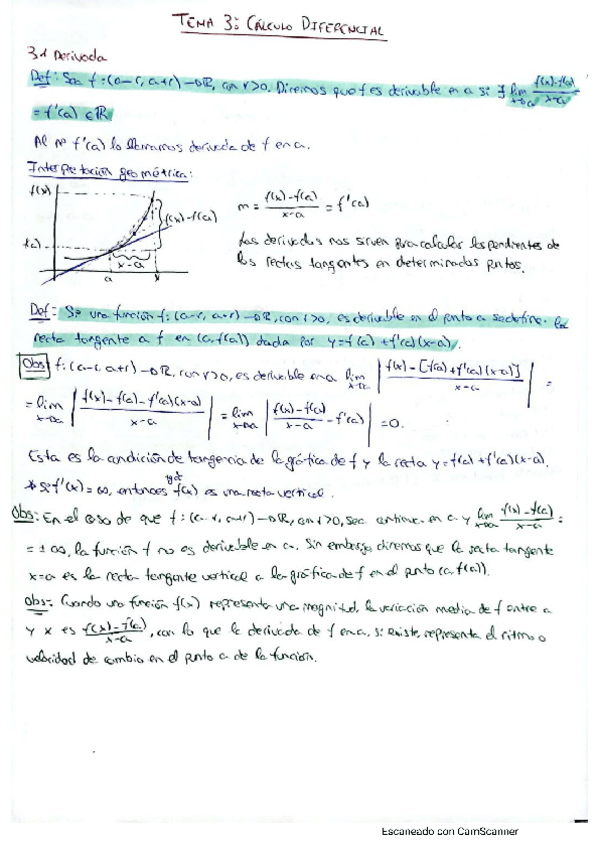 TEMA 3: CÁLCULO DIFERENCIAL
3.1 Derivada
Def: Sea f:(a-r, a+r)→ℝ, con r>0. Diremos que f es derivable en a si ∃ lim x→a (f(x)-f(a))/(x-a)
= f'(a) ∈ ℝ
Al nº f'(a) lo llamamos derivada de f en a.
Interpretación geométrica:
f(x)
f(x)-f(a)
f(a)
x-a
a x
m = (f(x)-f(a))/(x-a) = f'(a)
Las derivadas nos sirven para calcular las pendientes de
las rectas tangentes en determinados puntos.
Def: Si una función f:(a-r, a+r)→ℝ, con r>0, es derivable en el punto a se define la
recta tangente a f en (a, f(a)) dada por y=f(a)+f'(a)(x-a).
Obs f:(a-r, a+r)→ℝ, con r>0, es derivable en a lim x→a |(f(x)-[f(a)+f'(a)(x-a)])/(x-a)| =
= lim x→a |(f(x)-f(a)-f'(a)(x-a))/(x-a)| = lim x→a |(f(x)-f(a))/(x-a) - f'(a)| = 0.
Esta es la condición de tangencia de la gráfica de f y la recta y=f(a)+f'(a)(x-a).
* Si f'(x)=∞, entonces f(x) es una recta vertical.
Obs: En el caso de que f:(a-r, a+r)→ℝ, con r>0, sea continua en a y lim x→a (f(x)-f(a))/(x-a) =
= ±∞, la función f no es derivable en a. Sin embargo diremos que la recta tangente
x=a es la recta tangente vertical a la gráfica de f en el punto (a, f(a)).
Obs: Cuando una función f(x) representa una magnitud, la variación media de f entre a
y x es (f(x)-f(a))/(x-a), con lo que la derivada de f en a, si existe, representa el ritmo o
velocidad de cambio en el punto a de la función.
Escaneado con CamScanner